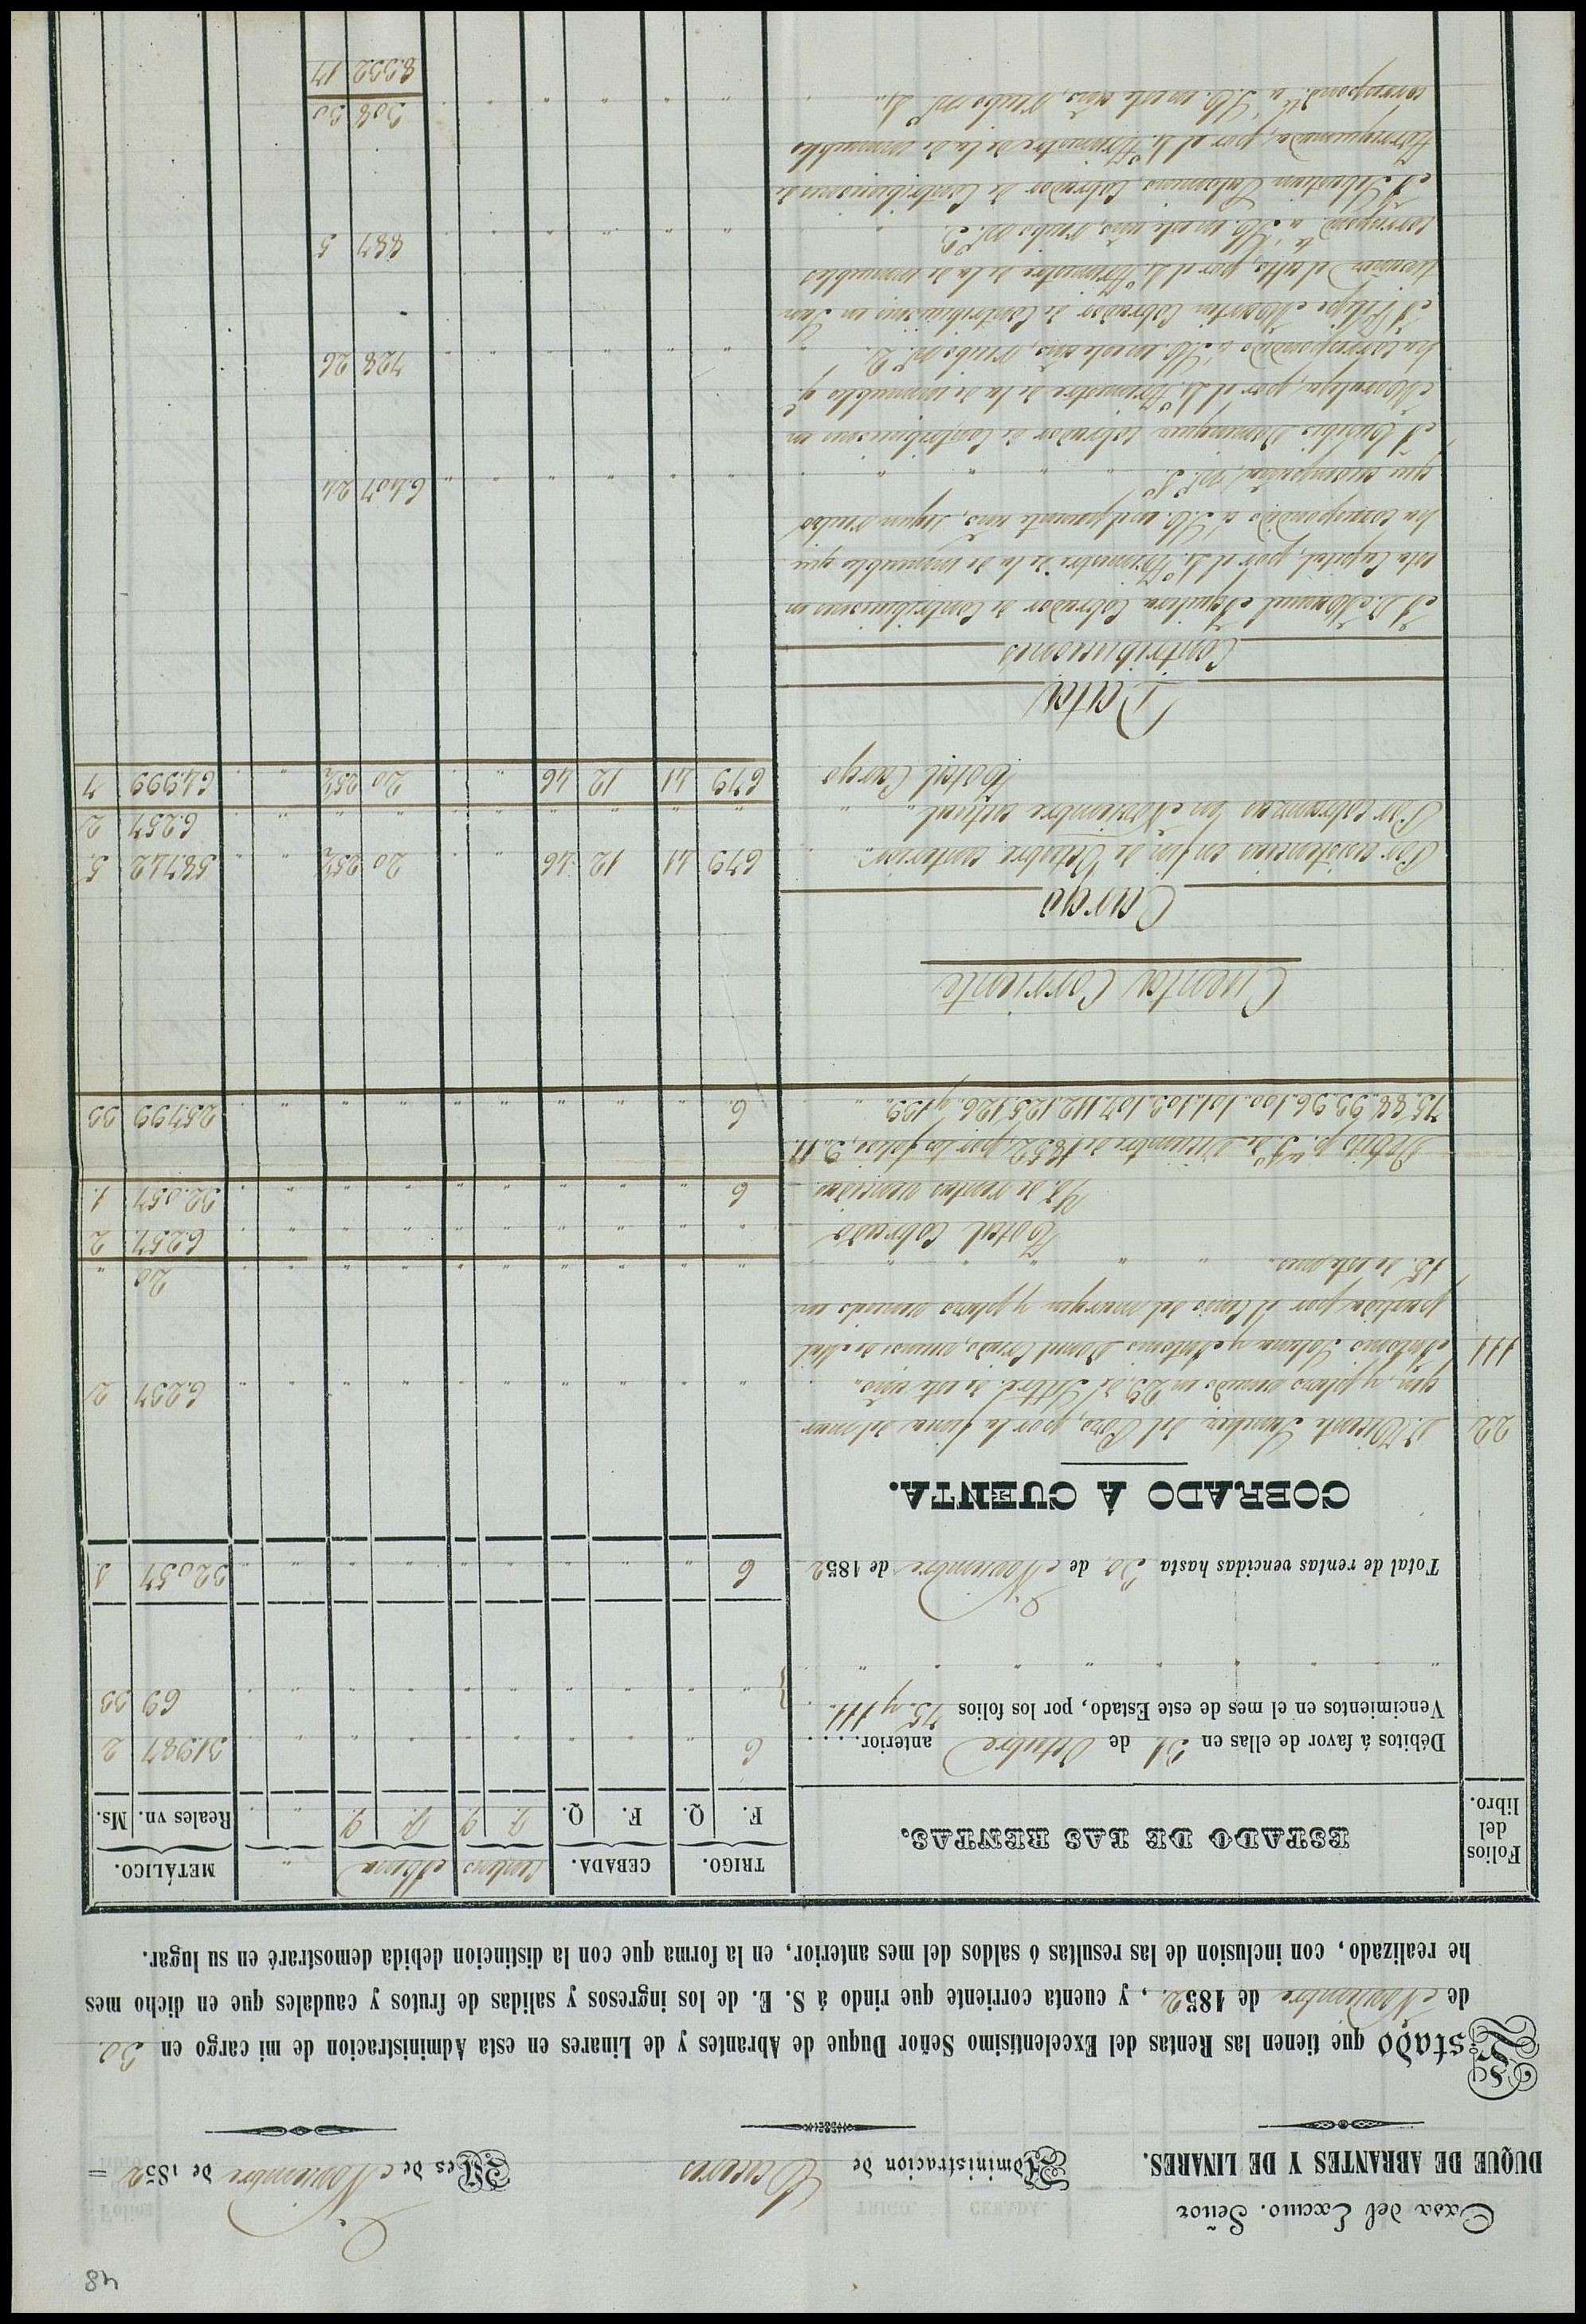 48
Casa del Excmo. Señor
DUQUE DE ABRANTES Y DE LINARES.
Administracion de Cáceres
Mes de Noviembre de 1852 =
Estado que tienen las Rentas del Excelentísimo Señor Duque de Abrantes y de Linares en esta Administracion de mi cargo en 30
de Noviembre de 1852, y cuenta corriente que rindo á S. E. de los ingresos y salidas de frutos y caudales que en dicho mes
he realizado, con inclusion de las resultas ó saldos del mes anterior, en la forma que con la distincion debida demostraré en su lugar.
Folios del libro.
ESTADO DE LAS RENTAS.
TRIGO. CEBADA. Centeno Abena " METÁLICO.
F. Q. F. Q. F. q F. q " Reales vn. Ms.
Débitos á favor de ellas en 31 de Octubre anterior. 6 31987 2
Vencimientos en el mes de este Estado, por los folios 75. y 111. 69 33
Total de rentas vencidas hasta 30 de Noviembre de 1852 6 32057 1
COBRADO Á CUENTA.
22 D. Vicente Sanchez del Pozo, por la finca del mar-
gen, y plazo vencido en 29 de Sttbre. de este año. 6237 2
111 Antonio Solana y Antonio
partida, por el Censo del margen y plazo vencido en
15. de este mes. 20 "
Total Cobrado 6.257 2
Yd. de rentas vencidas. 6 32.057 1
Débito p.ª 1º de Diciembre de 1852, por los folios, 9. 11.
75. 88. 93. 96. 100. 101. 103. 107. 112. 125. 126. y 139. 6. 25799 33
Cuenta Corriente
Cargo
Por existencias en fin de Octubre anterior. 679 41 12 46 20 25½ 58742 5
Por cobranzas en Noviembre actual 6.257 2
Total Cargo 679 41 12 46 20 25½ 64999 7
Data
Contribuciones
A D. Manuel Aguilera Cobrador de Contribuciones en
esta Capital, por el 4º trimestre de la de inmuebles que
ha correspondido á S.E. en el presente año, segun recibo
que acompaña, nº 1. 6.407 24
A Eusebio Dominguez Cobrador de Contribuciones en
por el 4º trimestre de la de inmuebles q.e
ha correspondido á S.E. en este año, recibo nº 2. 728 26
A Felipe Martin Cobrador de Contribuciones en
el alto, por el 4º trimestre de la de inmuebles
correspond.te á S.E. en este año, recibo nº 3. 887 5
A Sebastian Cobrador de Contribuciones de
Torrequemada, por el 4º trimestre de la de inmuebles
correspond.te á S.E. en este año, recibo nº 4. 308 30
8.332 17